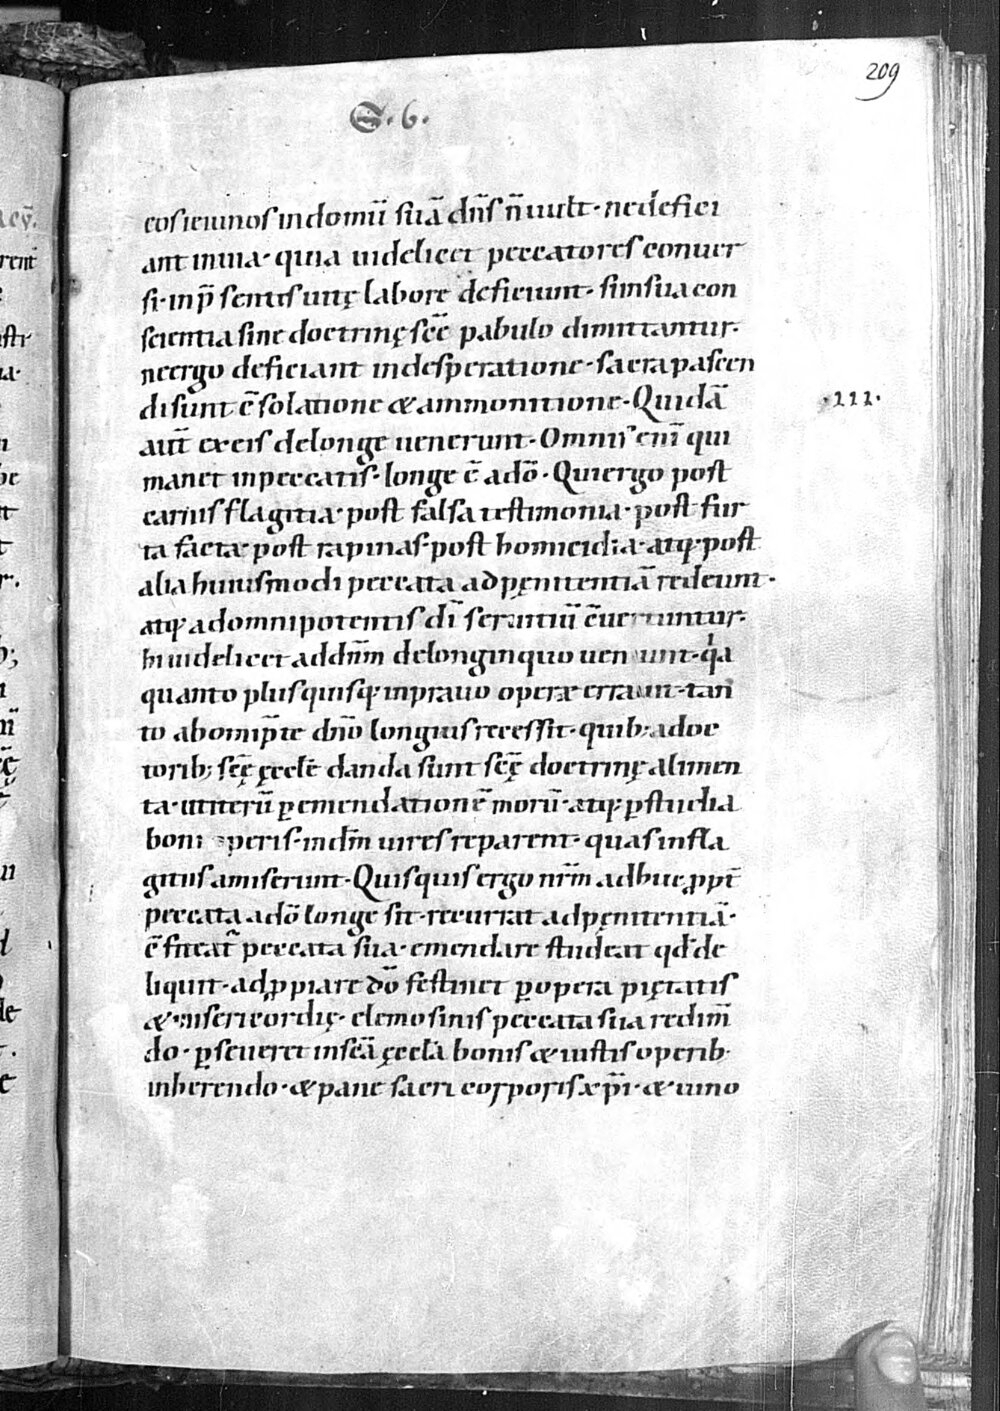 209
S. 6.
eos ieiunos in domū suā dn̄s n̄ uult· ne defici
ant in uia· quia uidelicet peccatores conuer
si· in p̄sentis uitę labore deficiunt· si in sua con
scientia sine doctrinę sc̄ę pabulo dimittantur.
ne ergo deficiant in desperatione· sacra pascen
di sunt c̄solatione & ammonitione· Quidā
·111·
aut̄ ex eis de longe uenerunt· Omnis eni̅ qui
manet in peccatis· longe ē a dō· Qui ergo post
carius flagitia· post falsa testimonia· post fur
ta facta· post rapinas· post homicidia· atq; post
alia huiusmodi peccata ad pęnitentiā redeunt·
atq; ad omnipotentis dī seruitiū c̄uertuntur·
hi uidelicet ad dn̄m de longinquo ueniunt· q̍a
quanto plus quisq; in prauo opere errauit· tan
to ab omip̄te dn̄o longius recessit· quib; a doc
torib; sc̄ę ęccłę danda sunt sc̄ę doctrinę alimen
ta· ut iterū p̱ emendationē morū· atq; p̱ studia
boni operis· in dn̄m uires reparent· quas in fla
gitiis amiserunt· Quisquis ergo nr̄m adhuc ꝓpt̄
peccata a dō longe sit· recurrat ad pęnitentiā·
c̄fiteat̄ peccata sua· emendare studeat qd̄ de
liquit· adꝓpiare dō festinet p̱ opera pietatis
& misericordię· elemosinis peccata sua redim̄
do· p̱seueret in sc̄ā ęccłā bonis & iustis operib·
inherendo· & pane sacri corporis xp̄i· & uino